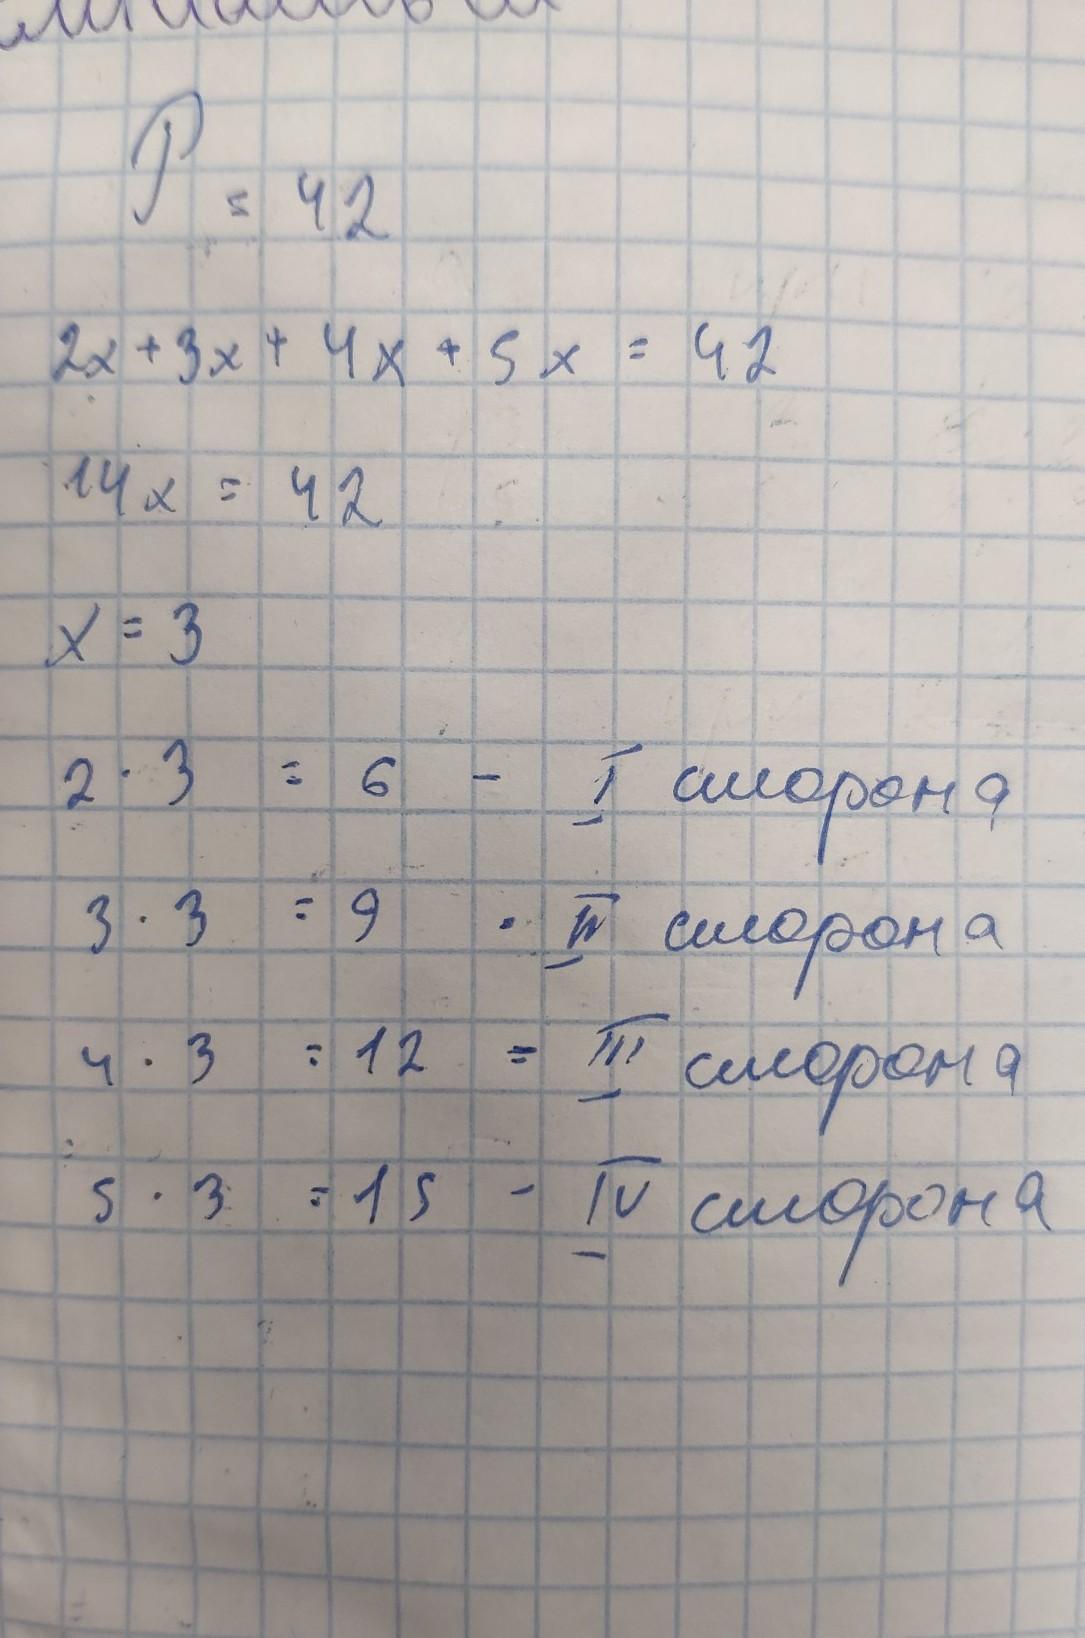 P = 42
2x + 3x + 4x + 5x = 42
14x = 42
x = 3
2 · 3 = 6 - I сторона
3 · 3 = 9 - II сторона
4 · 3 = 12 = III сторона
5 · 3 = 15 - IV сторона